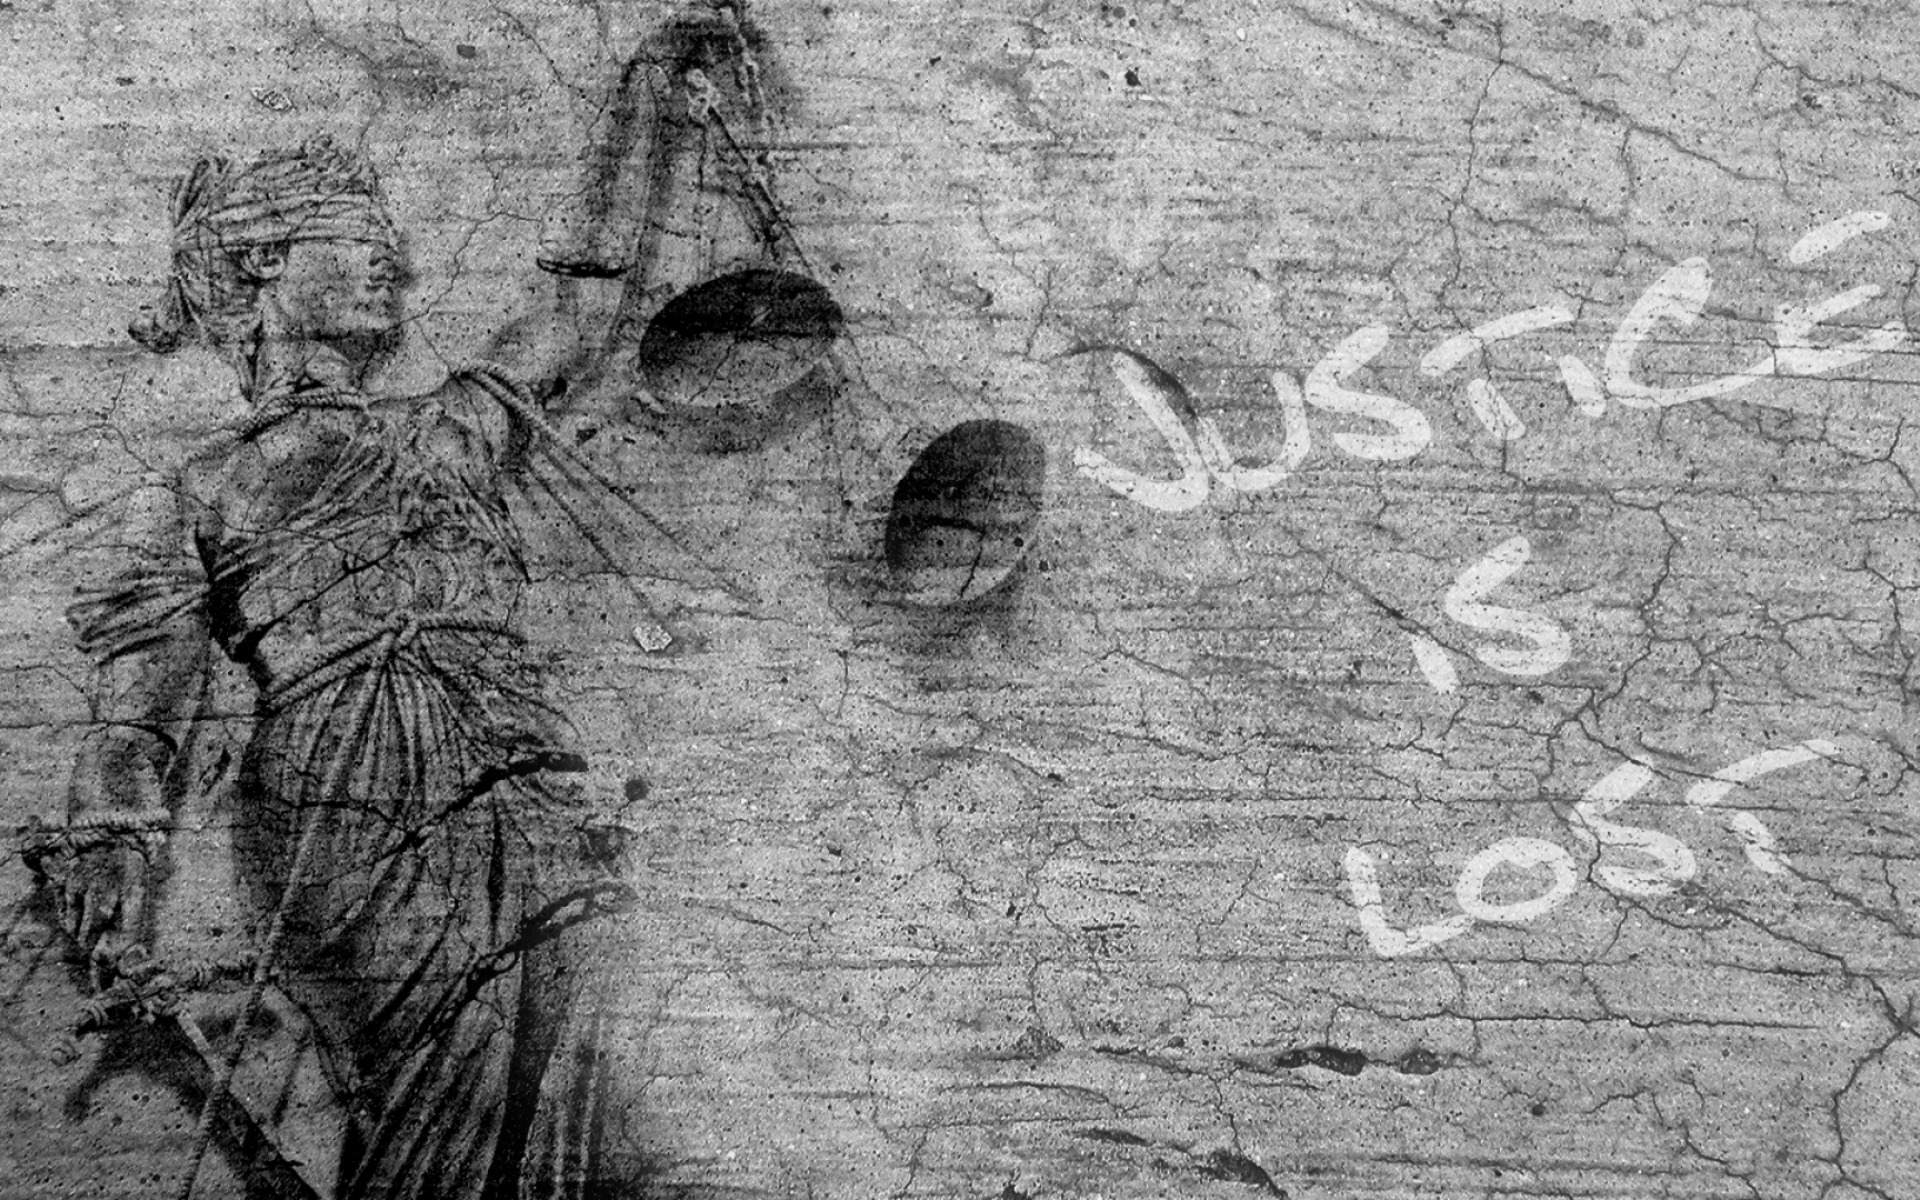 JUSTICE
IS
LOST